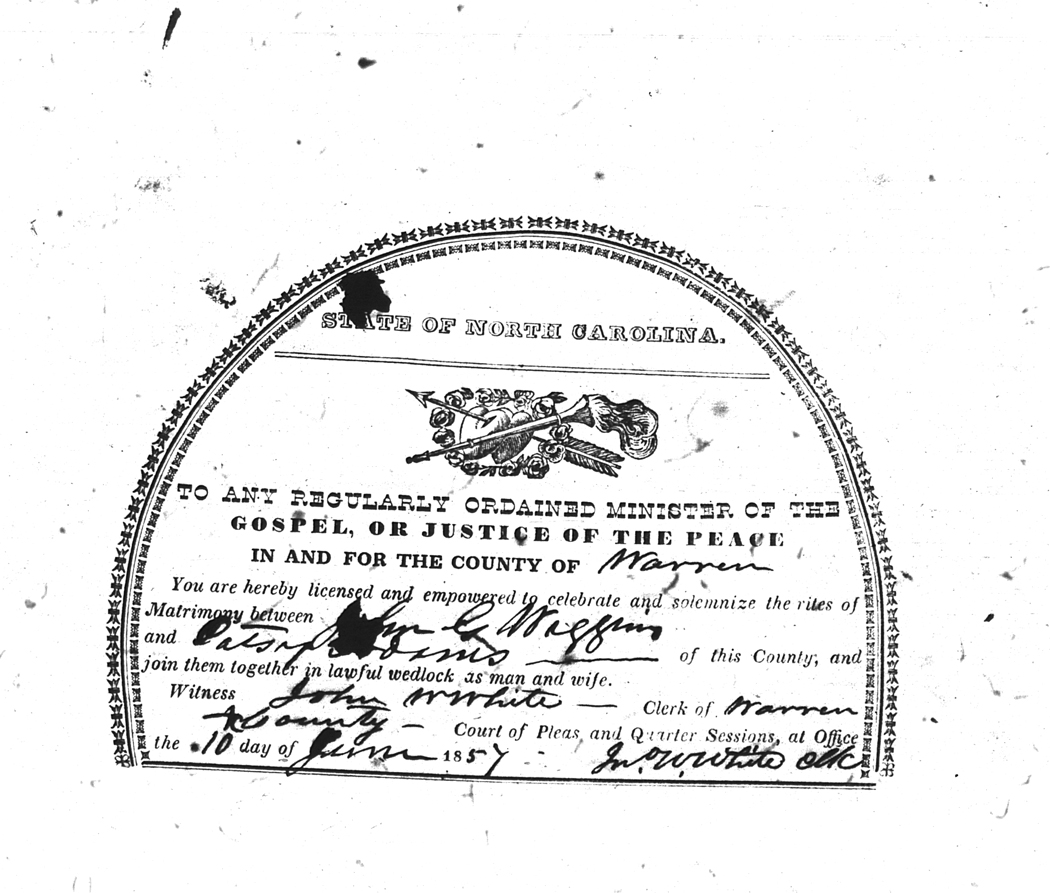 STATE OF NORTH CAROLINA.
TO ANY REGULARLY ORDAINED MINISTER OF THE
GOSPEL, OR JUSTICE OF THE PEACE
IN AND FOR THE COUNTY OF Warren
You are hereby licensed and empowered to celebrate and solemnize the rites of
Matrimony between John G Waggins
and Patsy of this County, and
join them together in lawful wedlock as man and wife.
Witness John W White — Clerk of Warren
County — Court of Pleas and Quarter Sessions, at Office
the 10 day of June 1857 Jno W. White Clk